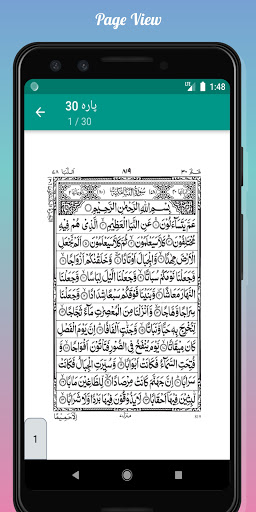 Page View
1:48
پارہ 30
1 / 30
٨١٩
بِسْمِ اللّٰهِ الرَّحْمٰنِ الرَّحِيْمِ
عَمَّ يَتَسَآءَلُوْنَ عَنِ النَّبَاِ الْعَظِيْمِ الَّذِيْ هُمْ فِيْهِ
مُخْتَلِفُوْنَ كَلَّا سَيَعْلَمُوْنَ ثُمَّ كَلَّا سَيَعْلَمُوْنَ اَلَمْ نَجْعَلِ
الْاَرْضَ مِهٰدًا وَّالْجِبَالَ اَوْتَادًا وَّخَلَقْنٰكُمْ اَزْوَاجًا
وَّجَعَلْنَا نَوْمَكُمْ سُبَاتًا وَّجَعَلْنَا الَّيْلَ لِبَاسًا وَّجَعَلْنَا
النَّهَارَ مَعَاشًا وَّبَنَيْنَا فَوْقَكُمْ سَبْعًا شِدَادًا وَّجَعَلْنَا
سِرَاجًا وَّهَّاجًا وَّاَنْزَلْنَا مِنَ الْمُعْصِرٰتِ مَآءً ثَجَّاجًا
لِّنُخْرِجَ بِهٖ حَبًّا وَّنَبَاتًا وَّجَنّٰتٍ اَلْفَافًا اِنَّ يَوْمَ الْفَصْلِ
كَانَ مِيْقَاتًا يَّوْمَ يُنْفَخُ فِي الصُّوْرِ فَتَاْتُوْنَ اَفْوَاجًا وَّفُتِحَتِ
السَّمَآءُ فَكَانَتْ اَبْوَابًا وَّسُيِّرَتِ الْجِبَالُ فَكَانَتْ
سَرَابًا اِنَّ جَهَنَّمَ كَانَتْ مِرْصَادًا لِّلطّٰغِيْنَ مَاٰبًا
لّٰبِثِيْنَ فِيْهَآ اَحْقَابًا لَا يَذُوْقُوْنَ فِيْهَا بَرْدًا وَّلَا شَرَابًا
1